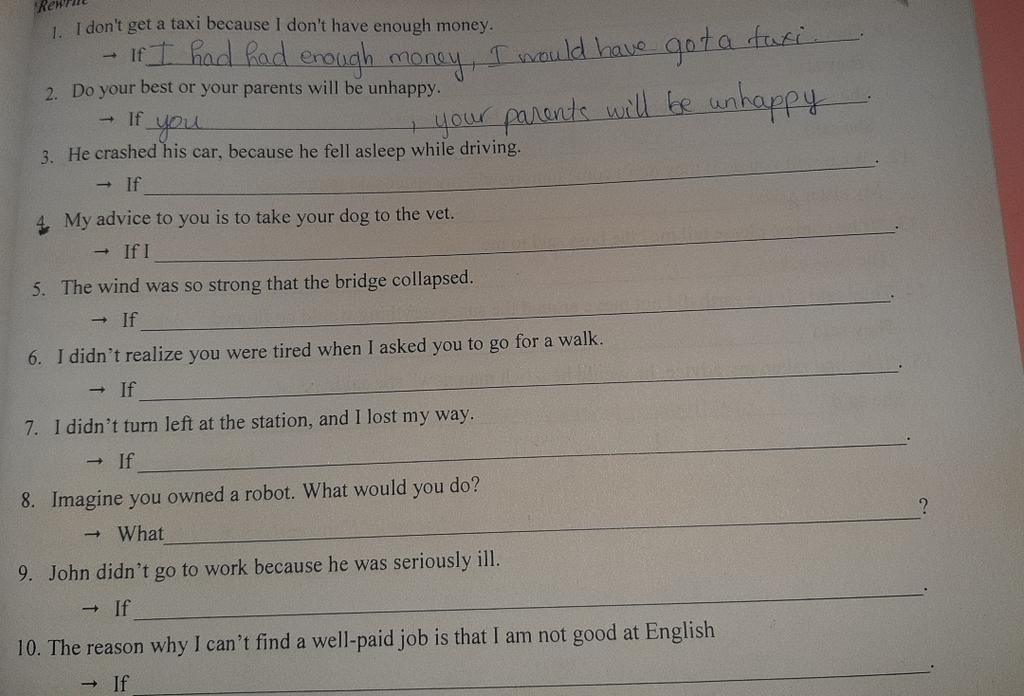 Rewrite
1. I don't get a taxi because I don't have enough money.
→ If I had had enough money, I would have got a taxi.
2. Do your best or your parents will be unhappy.
→ If you , your parents will be unhappy.
3. He crashed his car, because he fell asleep while driving.
→ If .
4. My advice to you is to take your dog to the vet.
→ If I .
5. The wind was so strong that the bridge collapsed.
→ If .
6. I didn't realize you were tired when I asked you to go for a walk.
→ If .
7. I didn't turn left at the station, and I lost my way.
→ If .
8. Imagine you owned a robot. What would you do?
→ What ?
9. John didn't go to work because he was seriously ill.
→ If .
10. The reason why I can't find a well-paid job is that I am not good at English
→ If .